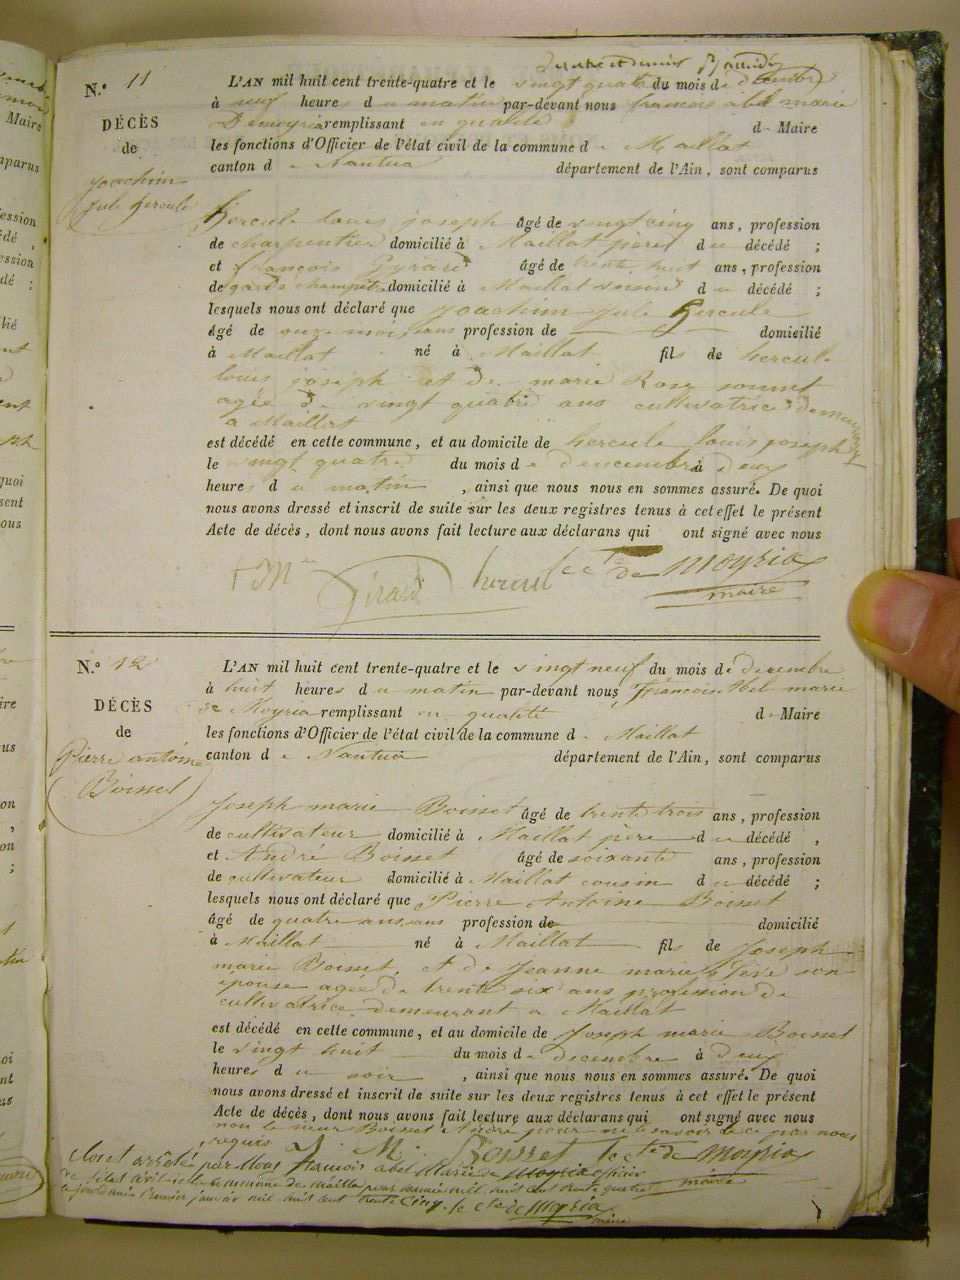 N.º 11
DÉCÈS
de
joachim
jule hercule
L'AN mil huit cent trente-quatre et le vingt quatre du mois de décembre
à neuf heures du matin par-devant nous francois abel marie
Demoyria remplissant en qualité d Maire
les fonctions d'Officier de l'état civil de la commune de Maillat
canton de Nantua département de l'Ain, sont comparus
hercule louis joseph âgé de vingt cinq ans, profession
de charpentier domicilié à Maillat père du décédé ;
et françois Gyrard âgé de trente huit ans, profession
de garde champetre domicilié à Maillat voisin du décédé ;
lesquels nous ont déclaré que joachim jule hercule
âgé de onze moi, sans profession de domicilié
à Maillat né à Maillat fils de hercule
louis joseph et de marie Rose sonnet
agée de vingt quatre ans cultivatrice demeurant
a Maillat
est décédé en cette commune, et au domicile de hercule louis joseph
le vingt quatre du mois de dencembre à deux
heures du matin, ainsi que nous nous en sommes assuré. De quoi
nous avons dressé et inscrit de suite sur les deux registres tenus à cet effet le présent
Acte de décès, dont nous avons fait lecture aux déclarans qui ont signé avec nous
Girard hercul le cte de Moyria
maire
N.º 12
DÉCÈS
de
Pierre antoine
Boisset
L'AN mil huit cent trente-quatre et le vingt neuf du mois de decembre
à huit heures du matin par-devant nous francois Abel marie
de Moyria remplissant en qualité d Maire
les fonctions d'Officier de l'état civil de la commune de Maillat
canton de Nantua département de l'Ain, sont comparus
Joseph marie Boisset âgé de trente trois ans, profession
de cultivateur domicilié à Maillat père du décédé,
et André Boisset âgé de soixante ans, profession
de cultivateur domicilié à Maillat cousin du décédé ;
lesquels nous ont déclaré que Pierre Antoine Boisset
âgé de quatre ans, sans profession de domicilié
à Maillat né à Maillat fils de Joseph
marie Boisset, et de Jeanne marie Feve son
épouse agée de trente six ans profession de
cultivatrice demeurant a Maillat
est décédé en cette commune, et au domicile de Joseph marie Boisset
le vingt huit du mois de decembre à deux
heures du soir, ainsi que nous nous en sommes assuré. De quoi
nous avons dressé et inscrit de suite sur les deux registres tenus à cet effet le présent
Acte de décès, dont nous avons fait lecture aux déclarans qui ont signé avec nous
non le sieur Boisset Andre pour ne le savoir de ce par nous
requis J. M. Boisset le cte de Moyria
maire
Clos et arrêté par Nous francois abel Marie de moyria officier
de l'état civil de la commune de maillat pour année mil huit cent trente quatre
ce jourd'huis premier janvier mil huit cent trente Cinq. le cte de Moyria
maire